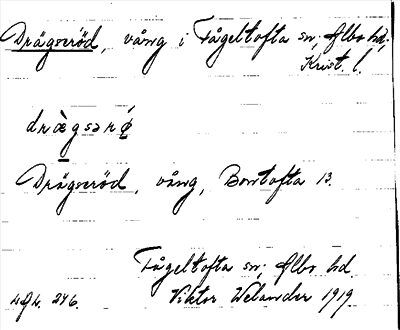 Drägseröd, vång i Fågeltofta sn; Albo hd,
Krist. l.
dràgsərǿ
Drägseröd, vång, Bontofta 13.
Fågeltofta sn; Albo hd.
Viktor Welander 1919
246.